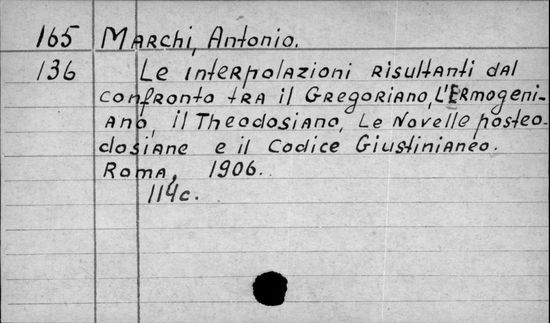 165 Marchi, Antonio.
136 Le interpolazioni risultanti dal
confronto tra il Gregoriano, L'Ermogeni-
ano, il Theodosiano, Le Novelle posteo-
dosiane e il Codice Giustinianeo.
Roma, 1906.
114c.